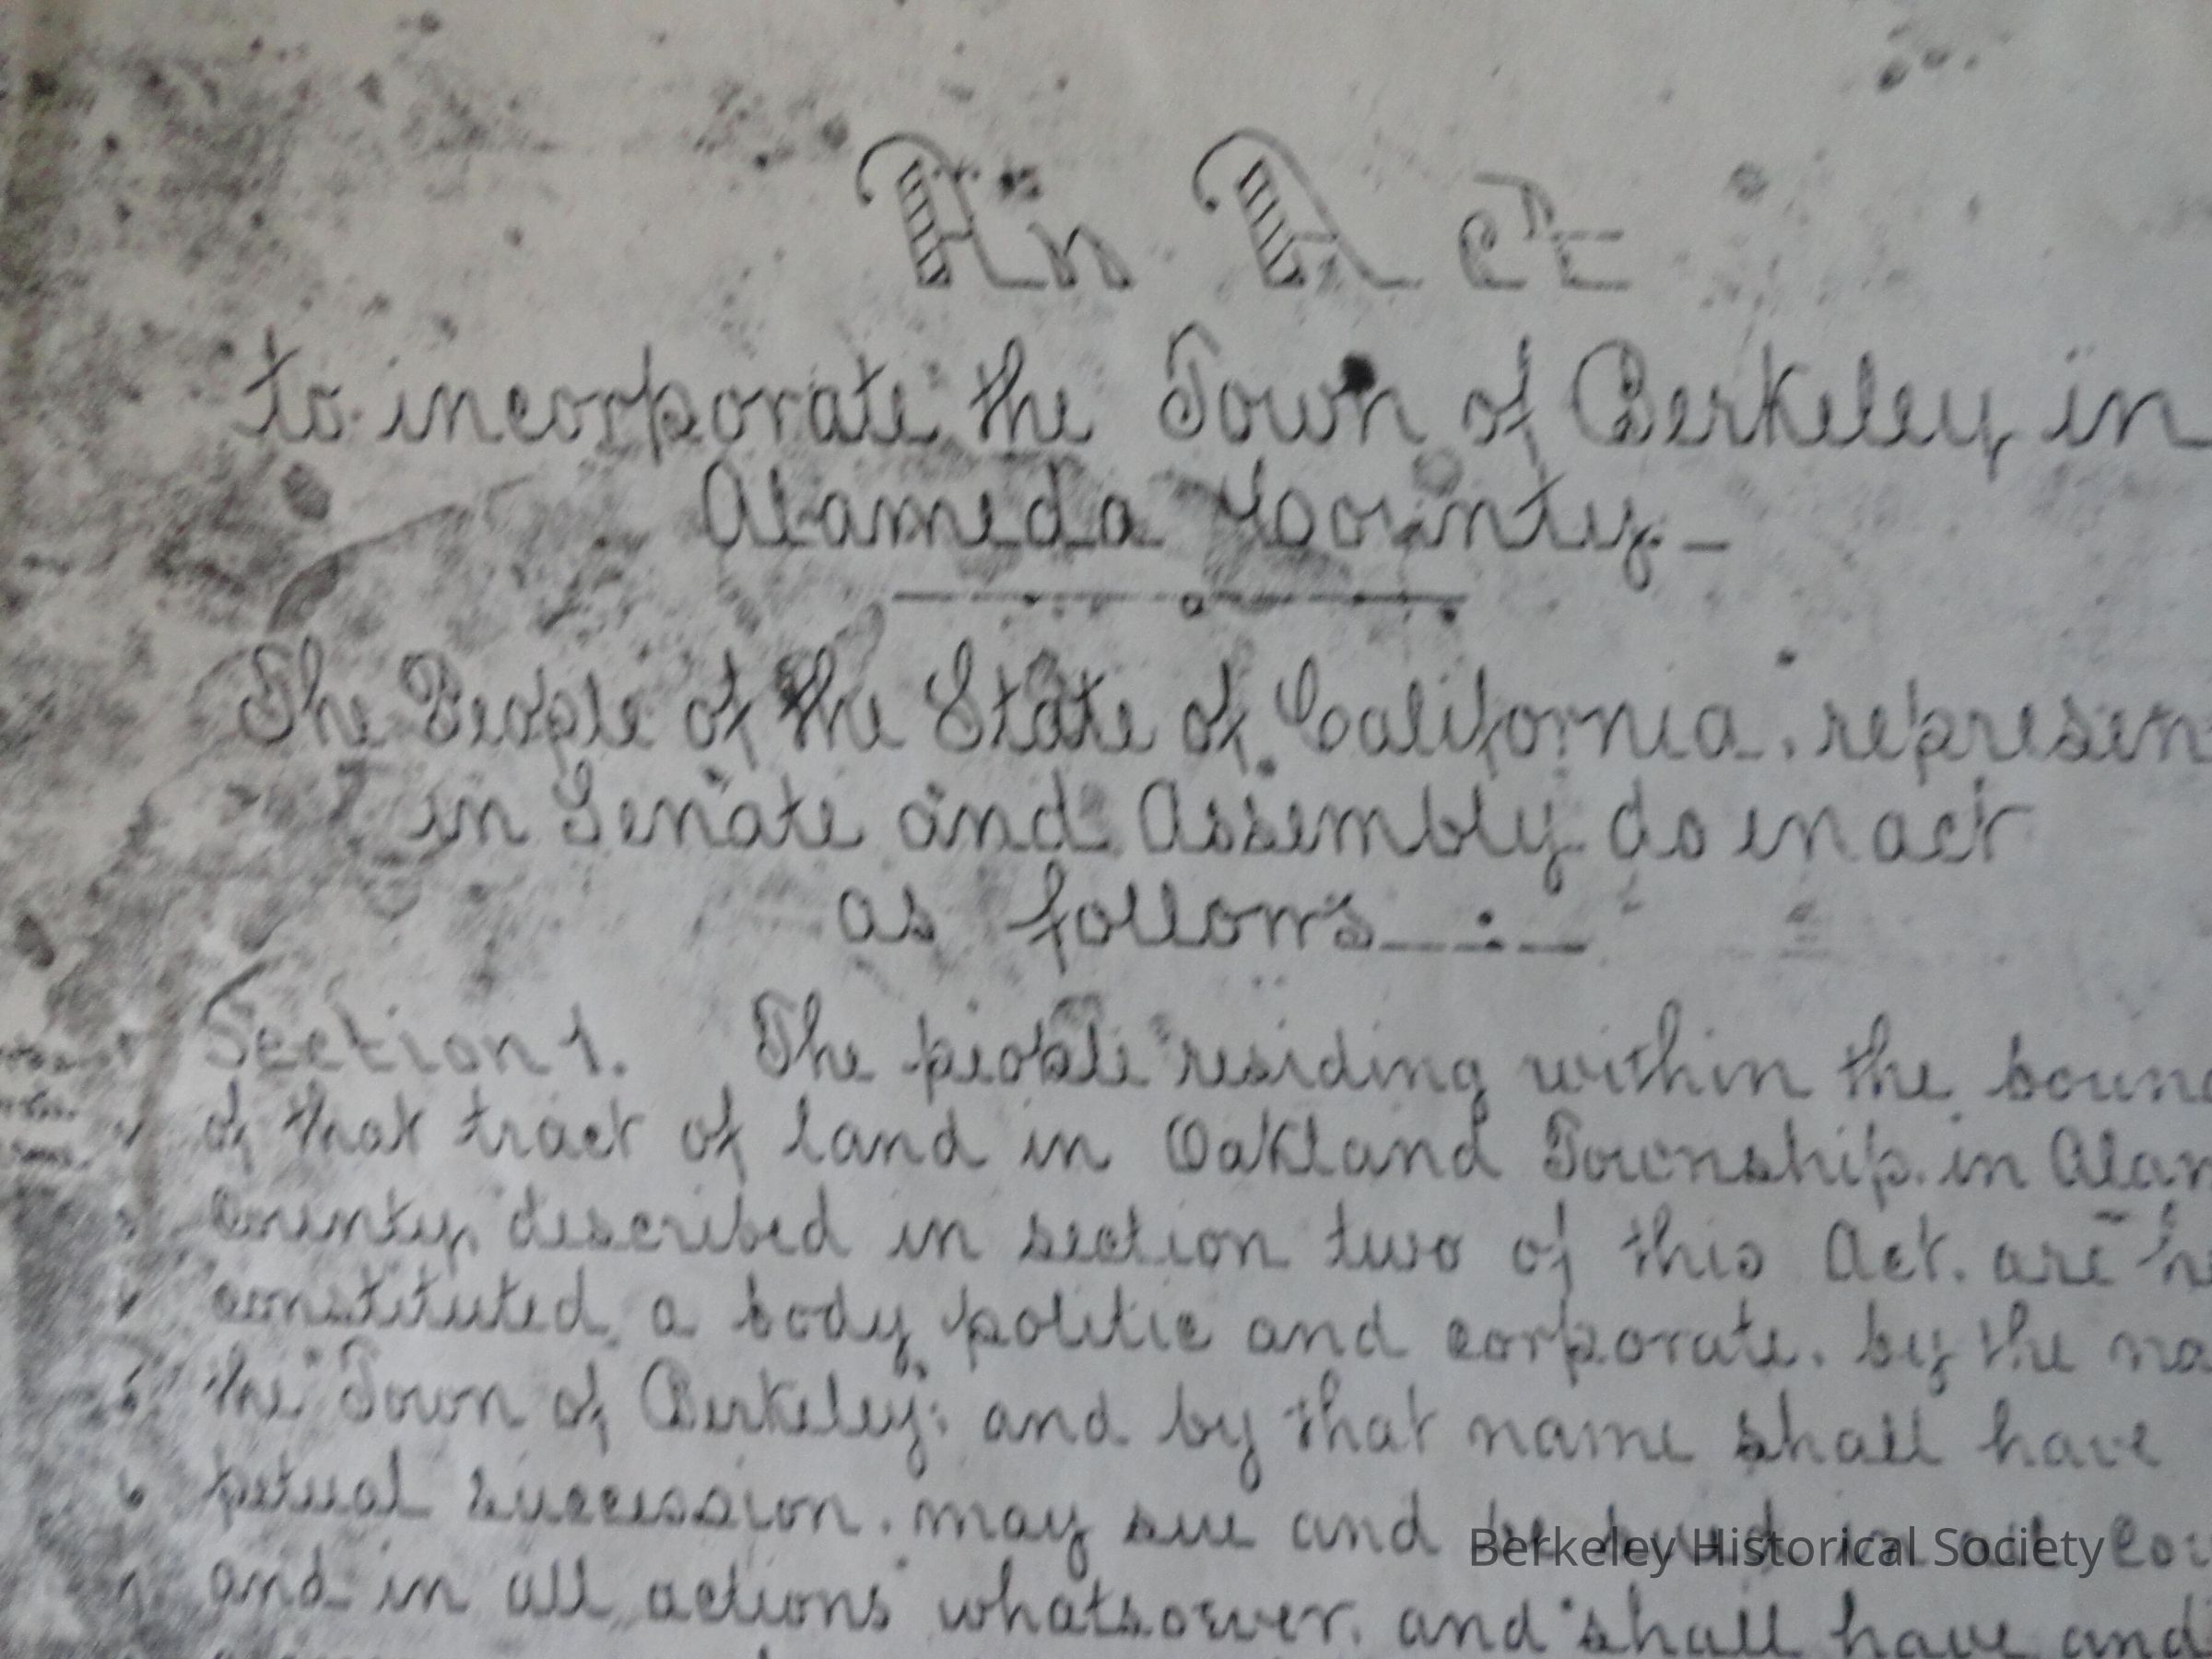 An Act
to incorporate the Town of Berkeley in
Alameda County.—
The People of the State of California, represen
in Senate and Assembly do enact
as follows
Section 1. The people residing within the boun
of that tract of land in Oakland Township, in Alam
County, described in section two of this Act, are he
constituted, a body politic and corporate, by the na
the Town of Berkeley; and by that name shall have
petual succession, may sue and be sued in all cou
and in all actions whatsoever, and shall have and
Berkeley Historical Society